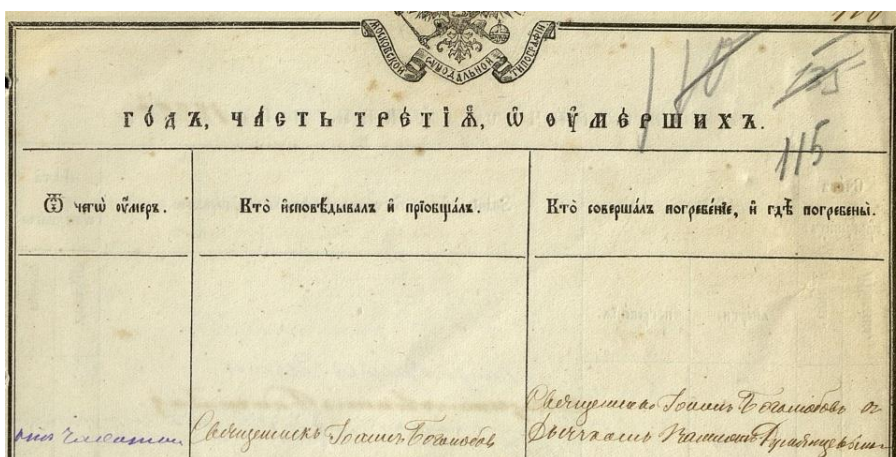 МОСКОВСКОЙ СѴНОДАЛЬНОЙ ТИПОГРАФІИ
110
135
115
ГО́ДЪ, ЧА́СТЬ ТРЕ́ТІѦ, Ѽ ОУ҆МЕ́РШИХЪ.
Ѿ чегѡ̀ оу҆́меръ.
Кто̀ и҆сповѣ́дывалъ и҆ прїобща́лъ.
Кто̀ соверша́лъ погребе́нїе, и҆ гдѣ̀ погребены̀.
Священникъ Іоаннъ Боголюбовъ съ
Священникъ Іоаннъ Боголюбовъ
Дьячкомъ